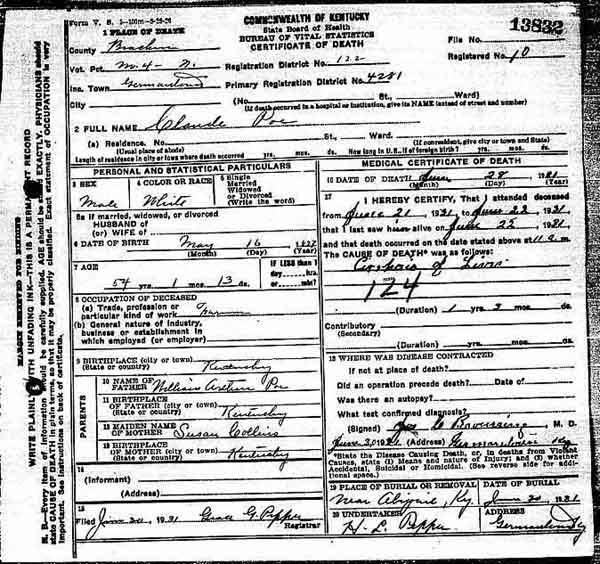 Form V. S. 1-100m-8-25-26
COMMONWEALTH OF KENTUCKY
State Board of Health
BUREAU OF VITAL STATISTICS
CERTIFICATE OF DEATH
13832
File No.
Registered No. 10
1 PLACE OF DEATH
County Bracken
Vot. Pct. No. 4 - N.
Inc. Town Germantown
City
Registration District No. 122
Primary Registration District No. 4281
(No. St., Ward)
(If death occurred in a hospital or institution, give its NAME instead of street and number)
2 FULL NAME Claude Poe
(a) Residence. No. St., Ward.
(Usual place of abode) (If nonresident, give city or town and State)
Length of residence in city or town where death occurred yrs. mos. ds. How long in U.S., if of foreign birth? yrs. mos. ds.
PERSONAL AND STATISTICAL PARTICULARS
3 SEX
Male
4 COLOR OR RACE
White
5 Single
Married
Widowed
or Divorced
(Write the word)
5a If married, widowed, or divorced
HUSBAND of
(or) WIFE of
6 DATE OF BIRTH May 16
(Month) (Day) (Year)
7 AGE
54 yrs. 1 mos. 13 ds.
IF LESS than 1
day, hrs.
or min.
8 OCCUPATION OF DECEASED
(a) Trade, profession or
particular kind of work Farmer
(b) General nature of industry,
business or establishment in
which employed (or employer)
9 BIRTHPLACE (city or town) Kentucky
(State or country)
PARENTS
10 NAME OF
FATHER William Arthur Poe
11 BIRTHPLACE
OF FATHER (city or town) Kentucky
(State or country)
12 MAIDEN NAME
OF MOTHER Susan Collins
13 BIRTHPLACE
OF MOTHER (city or town) Kentucky
(State or country)
14
(Informant)
(Address)
15
Filed June 30, 1931 Grace G. Pepper
Registrar
MEDICAL CERTIFICATE OF DEATH
16 DATE OF DEATH June 28 1931
(Month) (Day) (Year)
17 I HEREBY CERTIFY, That I attended deceased
from June 21 1931, to June 22 1931
that I last saw h alive on June 22 1931
and that death occurred on the date stated above at 11 a.m.
The CAUSE OF DEATH* was as follows:
Cirrhosis of Liver
124
(Duration) 1 yrs. 3 mos. ds.
Contributory
(Secondary)
(Duration) yrs. mos. ds.
18 WHERE WAS DISEASE CONTRACTED
If not at place of death?
Did an operation precede death? Date of
Was there an autopsy?
What test confirmed diagnosis?
(Signed) Browning, M. D.
June 30, 1931 (Address) Germantown Ky
*State the Disease Causing Death, or, in deaths from Violent
Causes, state (1) Means and nature of Injury; and (2) whether
Accidental, Suicidal or Homicidal. (See reverse side for addi-
tional space.)
19 PLACE OF BURIAL OR REMOVAL
Near Abigail, Ky.
DATE OF BURIAL
June 30 1931
20 UNDERTAKER
H. L. Pepper
ADDRESS
Germantown Ky
MARGIN RESERVED FOR BINDING
WRITE PLAINLY WITH UNFADING INK—THIS IS A PERMANENT RECORD
N. B.—Every item of information should be carefully supplied. AGE should be stated EXACTLY. PHYSICIANS should
state CAUSE OF DEATH in plain terms, so that it may be properly classified. Exact statement of OCCUPATION is very
important. See instructions on back of certificate.